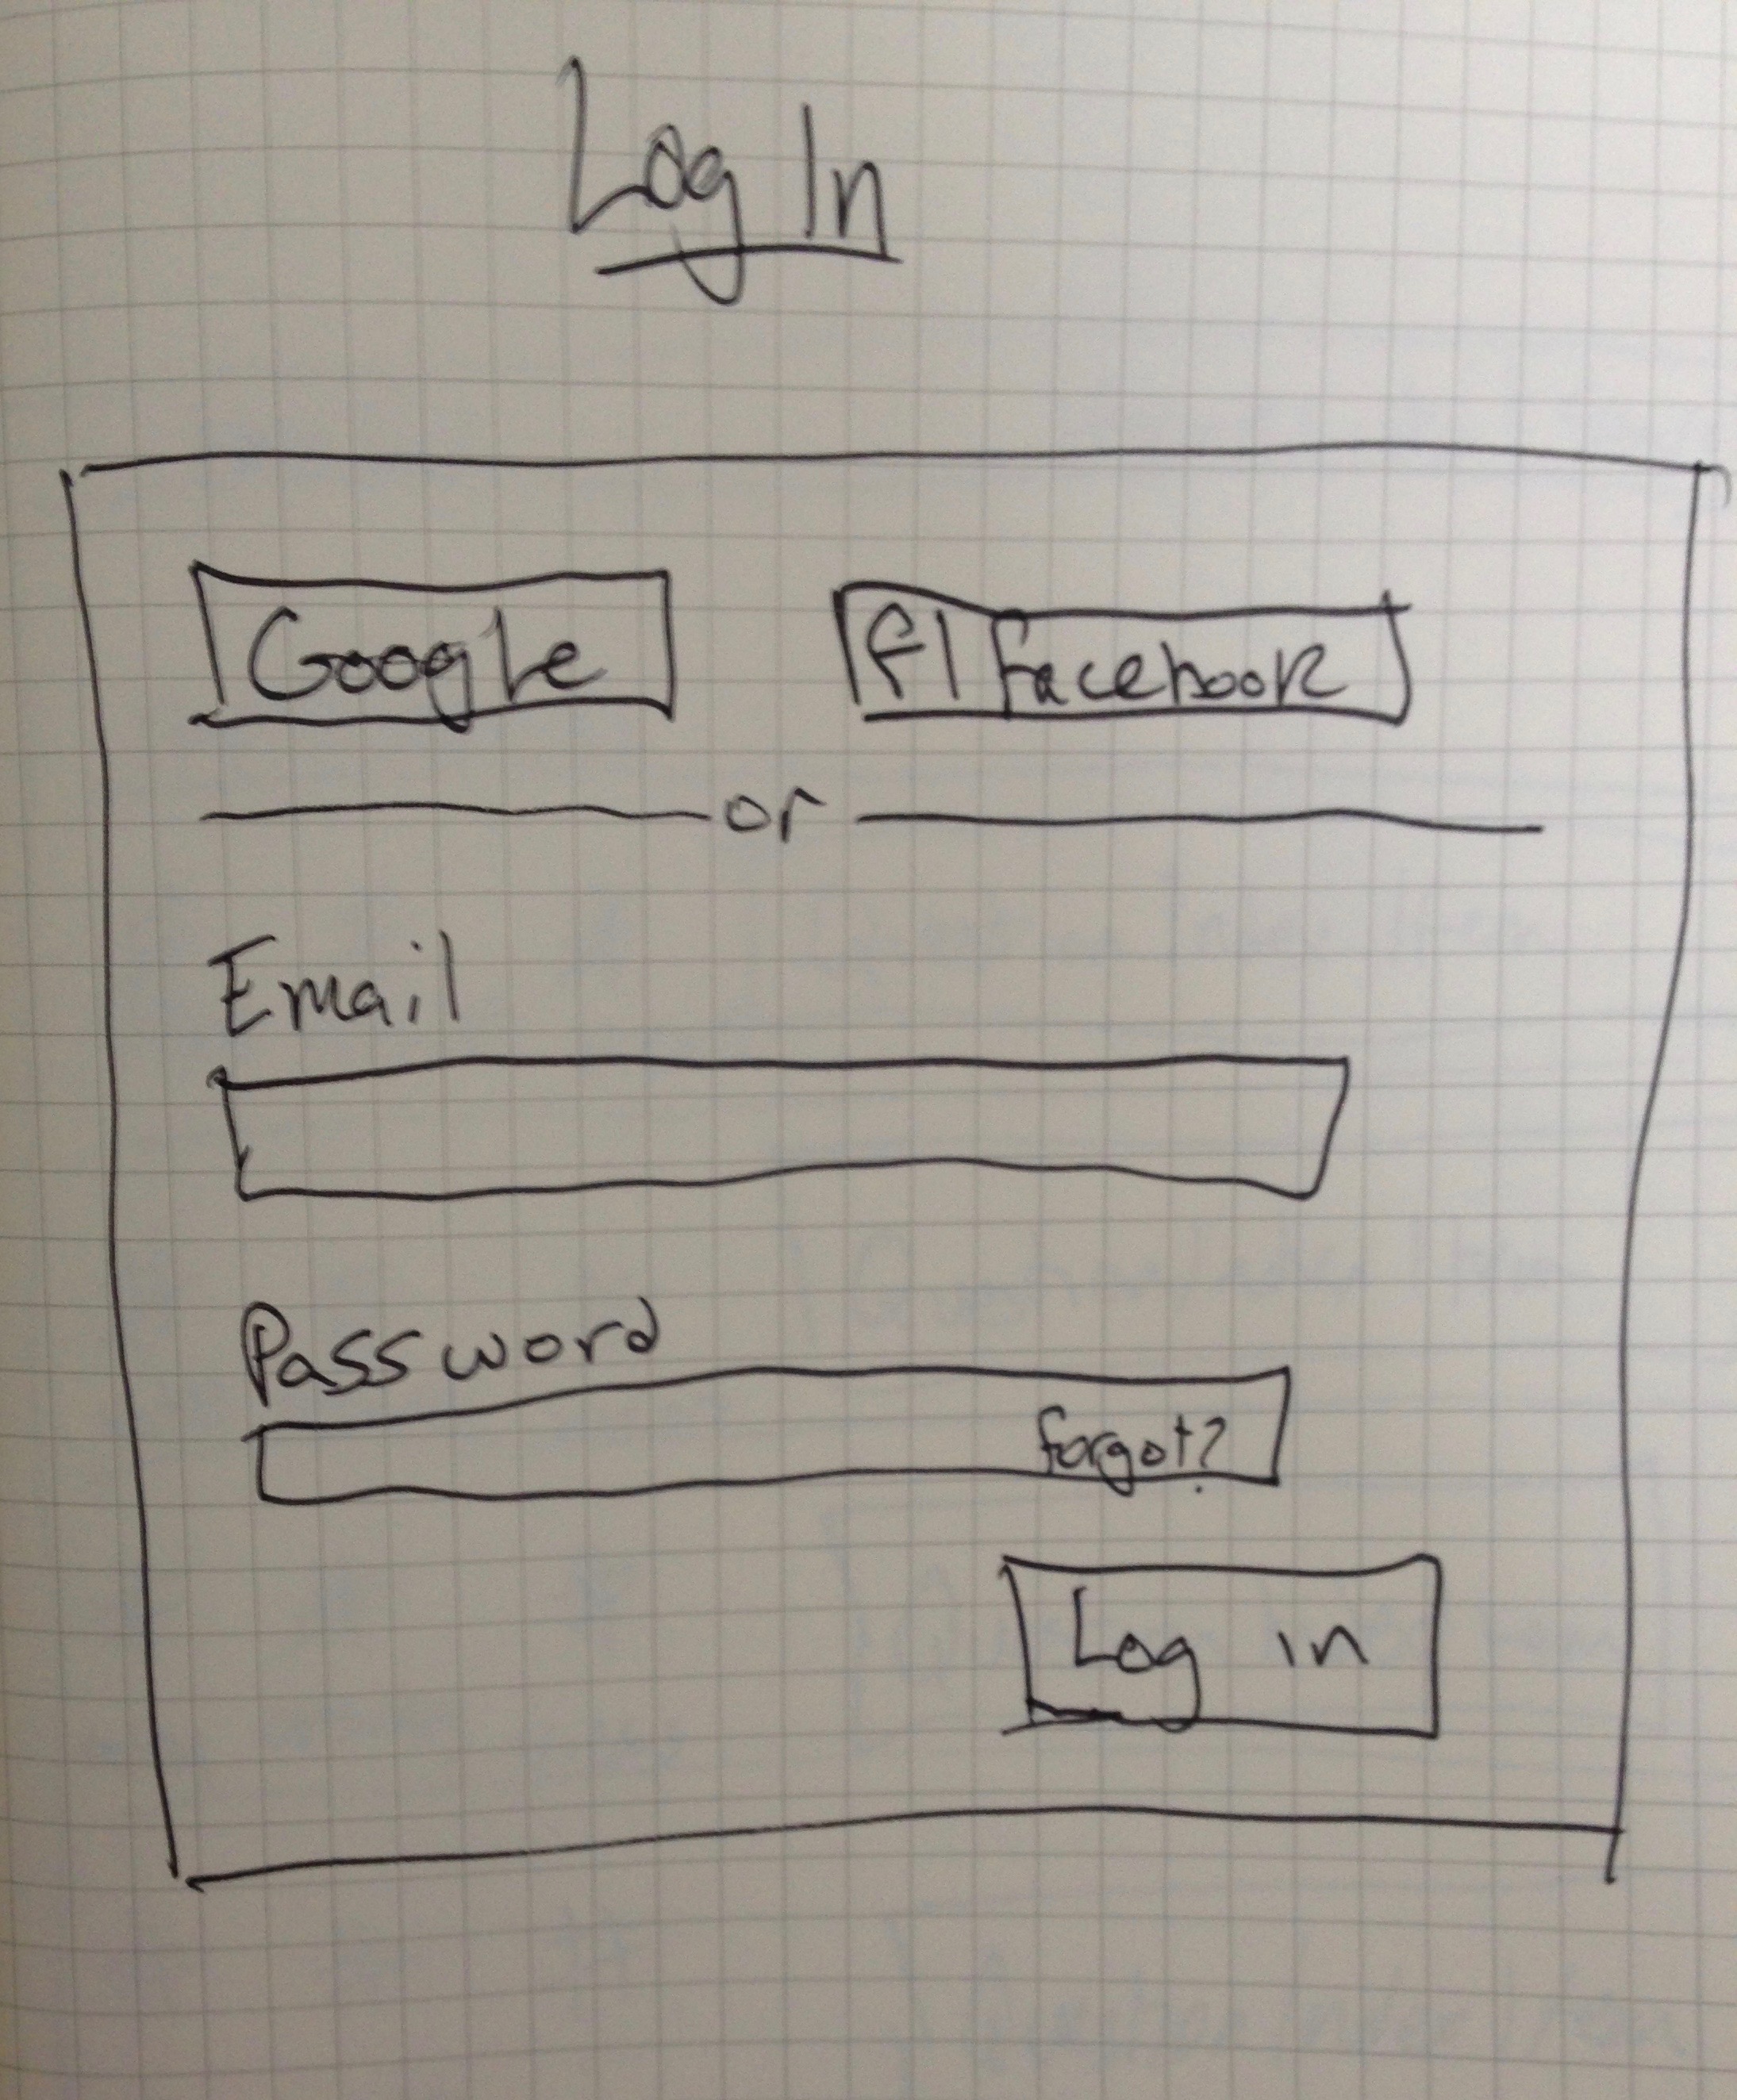 Log In
Google
f| Facebook
or
Email
Password
forgot?
Log in